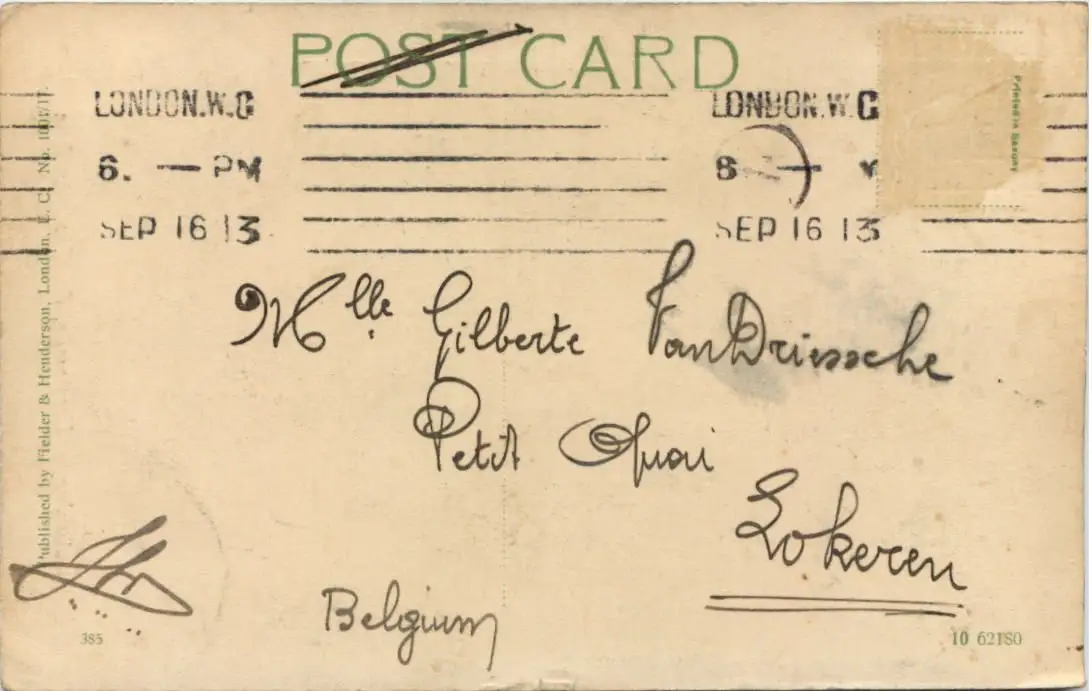 POST CARD
LONDON.W.C
6. — PM
SEP 16 13
LONDON.W.C
SEP 16 13
Printed in Saxony
Published by Fielder & Henderson, London, E. C. No.
Mlle Gilberte Van Driessche
Petit Quai
Lokeren
Belgium
385
10 62180